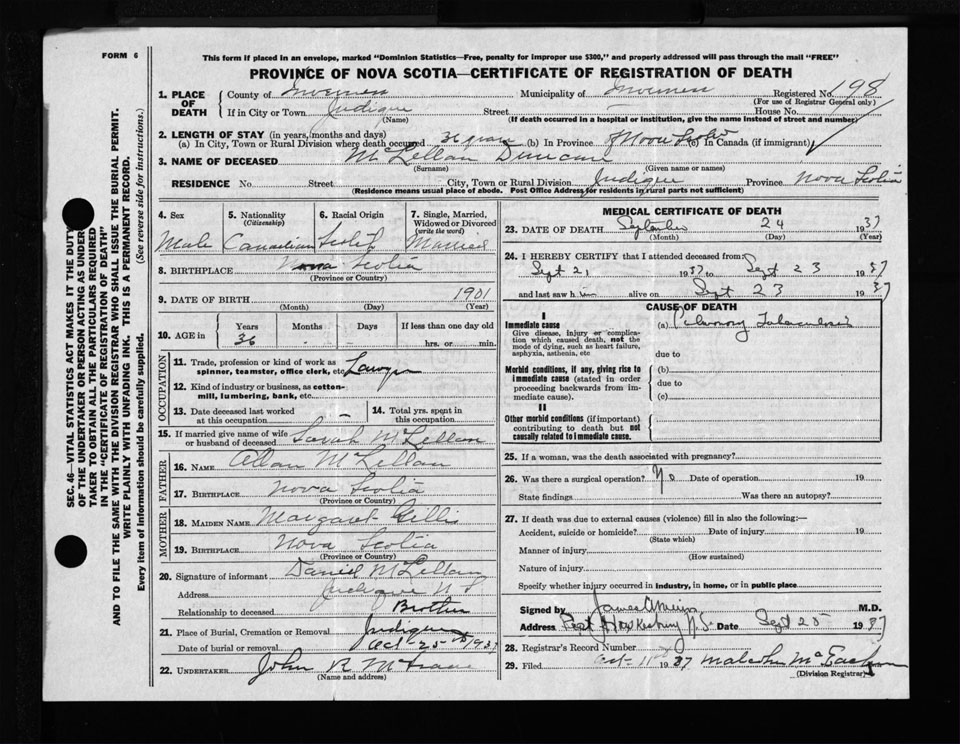 FORM 6
This form if placed in an envelope, marked "Dominion Statistics—Free, penalty for improper use $300," and properly addressed will pass through the mail "FREE"
PROVINCE OF NOVA SCOTIA—CERTIFICATE OF REGISTRATION OF DEATH
1. PLACE OF DEATH County of Inverness Municipality of Inverness Registered No. 198
(For use of Registrar General only)
If in City or Town Judique Street House No.
(Name) (If death occurred in a hospital or institution, give the name instead of street and number)
2. LENGTH OF STAY (in years, months and days)
(a) In City, Town or Rural Division where death occurred 36 years (b) In Province Nova Scotia (c) In Canada (if immigrant)
3. NAME OF DECEASED McLellan Duncan
(Surname) (Given name or names)
RESIDENCE No. Street City, Town or Rural Division Judique Province Nova Scotia
(Residence means usual place of abode. Post Office Address for residents in rural parts not sufficient)
4. Sex Male
5. Nationality (Citizenship) Canadian
6. Racial Origin Scotch
7. Single, Married, Widowed or Divorced (write the word) Married
8. BIRTHPLACE Nova Scotia
(Province or Country)
9. DATE OF BIRTH 1901
(Month) (Day) (Year)
10. AGE in Years Months Days If less than one day old
36 hrs. or min.
OCCUPATION
11. Trade, profession or kind of work as spinner, teamster, office clerk, etc. Lawyer
12. Kind of industry or business, as cotton-mill, lumbering, bank, etc.
13. Date deceased last worked at this occupation –
14. Total yrs. spent in this occupation
15. If married give name of wife or husband of deceased Sarah McLellan
FATHER
16. NAME Allan McLellan
17. BIRTHPLACE Nova Scotia
MOTHER
18. MAIDEN NAME Margaret Gillis
19. BIRTHPLACE Nova Scotia
(Province or Country)
20. Signature of informant Daniel McLellan
Address Judique N S
Relationship to deceased Brother
21. Place of Burial, Cremation or Removal Judique
Date of burial or removal Oct-25th 1937
22. UNDERTAKER John R
(Name and address)
MEDICAL CERTIFICATE OF DEATH
23. DATE OF DEATH September 24 1937
(Month) (Day) (Year)
24. I HEREBY CERTIFY that I attended deceased from
Sept 21 1937 to Sept 23 1937
and last saw him alive on Sept 23 1937
CAUSE OF DEATH
I
Immediate cause
Give disease, injury or complication which caused death, not the mode of dying, such as heart failure, asphyxia, asthenia, etc
(a) Pulmonary Tuberculosis
due to
Morbid conditions, if any, giving rise to immediate cause (stated in order proceeding backwards from immediate cause).
(b)
due to
(c)
II
Other morbid conditions (if important) contributing to death but not causally related to immediate cause.
25. If a woman, was the death associated with pregnancy?
26. Was there a surgical operation? No Date of operation 19
State findings Was there an autopsy?
27. If death was due to external causes (violence) fill in also the following:—
Accident, suicide or homicide? Date of injury 19
(State which)
Manner of injury
(How sustained)
Nature of injury
Specify whether injury occurred in industry, in home, or in public place
Signed by James M.D.
Address Port Hawkesbury N.S. Date Sept 25 1937
28. Registrar's Record Number
29. Filed Oct-11 1937 Malcolm
(Division Registrar)
SEC. 46—VITAL STATISTICS ACT MAKES IT THE DUTY
OF THE UNDERTAKER OR PERSON ACTING AS UNDERTAKER
TO OBTAIN ALL THE PARTICULARS REQUIRED
IN THE "CERTIFICATE OF REGISTRATION OF DEATH"
AND TO FILE THE SAME WITH THE DIVISION REGISTRAR WHO SHALL ISSUE THE BURIAL PERMIT.
WRITE PLAINLY WITH UNFADING INK. THIS IS A PERMANENT RECORD.
Every item of information should be carefully supplied. (See reverse side for instructions.)